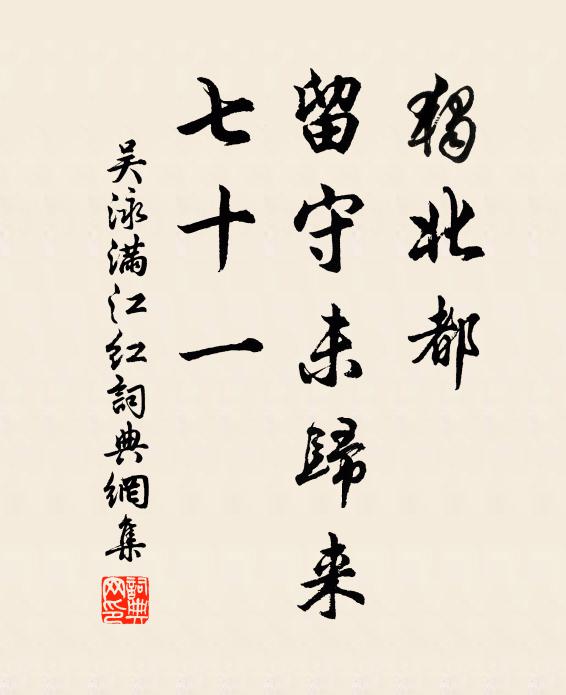 獨北都
留守未歸来
七十一
吴泳满江红詞典網集
詞典网印